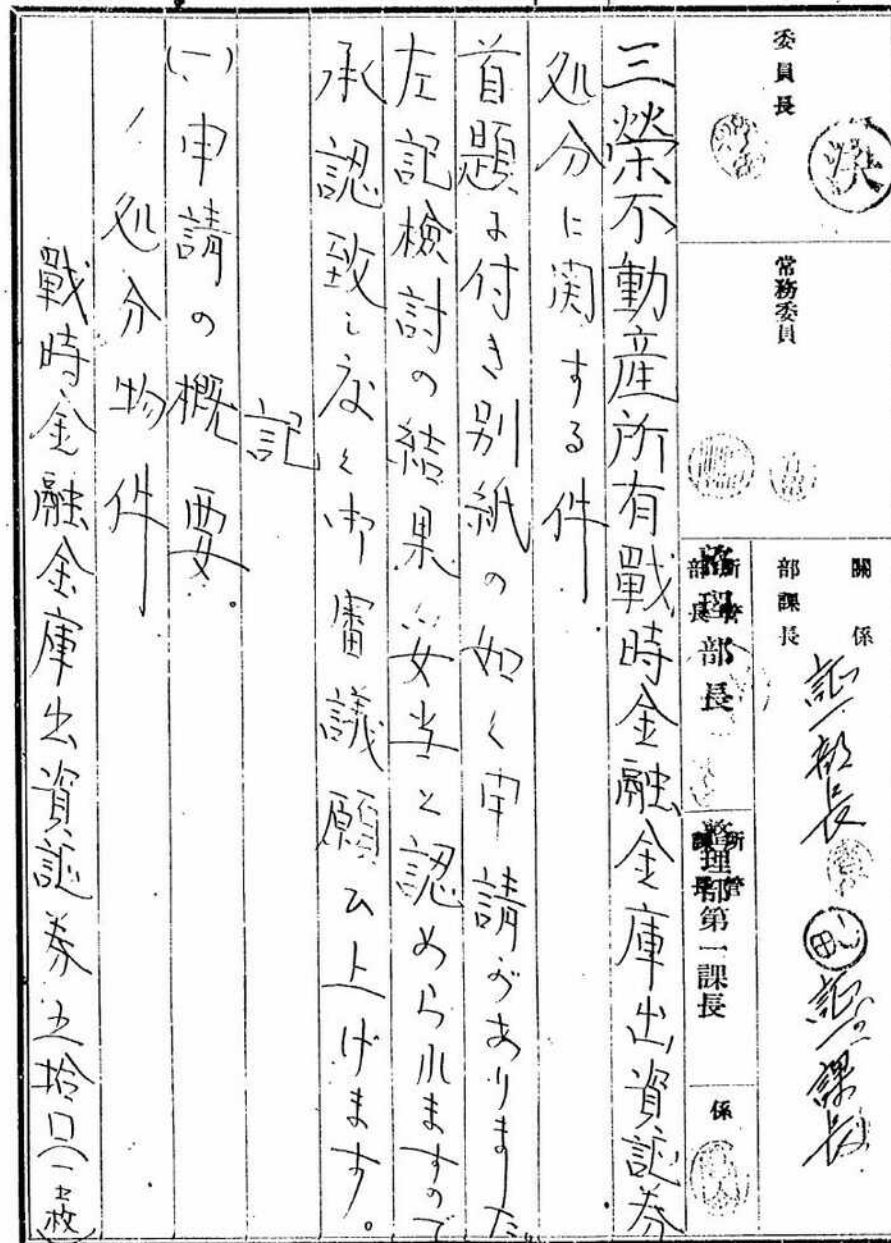 委員長
決
常務委員
關係
部課長
証一部長
証一の課長
所管
部長
整理部長
所管
課長
整理部第一課長
係
三榮不動産所有戰時金融金庫出資証券
処分に関する件
首題に付き別紙の如く申請がありました。
左記検討の結果妥当と認められますので
承認致し度く御審議願ひ上げます。
記
(一)申請の概要。
1処分物件
戰時金融金庫出資証券五拾口(一枚)